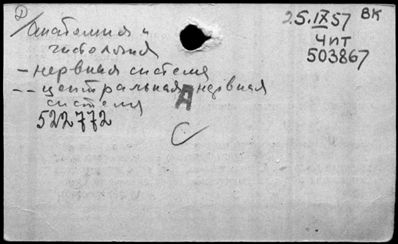 Д
25.IX57 ВК
Анатомия и
гистология
Чит
503867
– нервная система
– – центральная нервная
А
система
522772